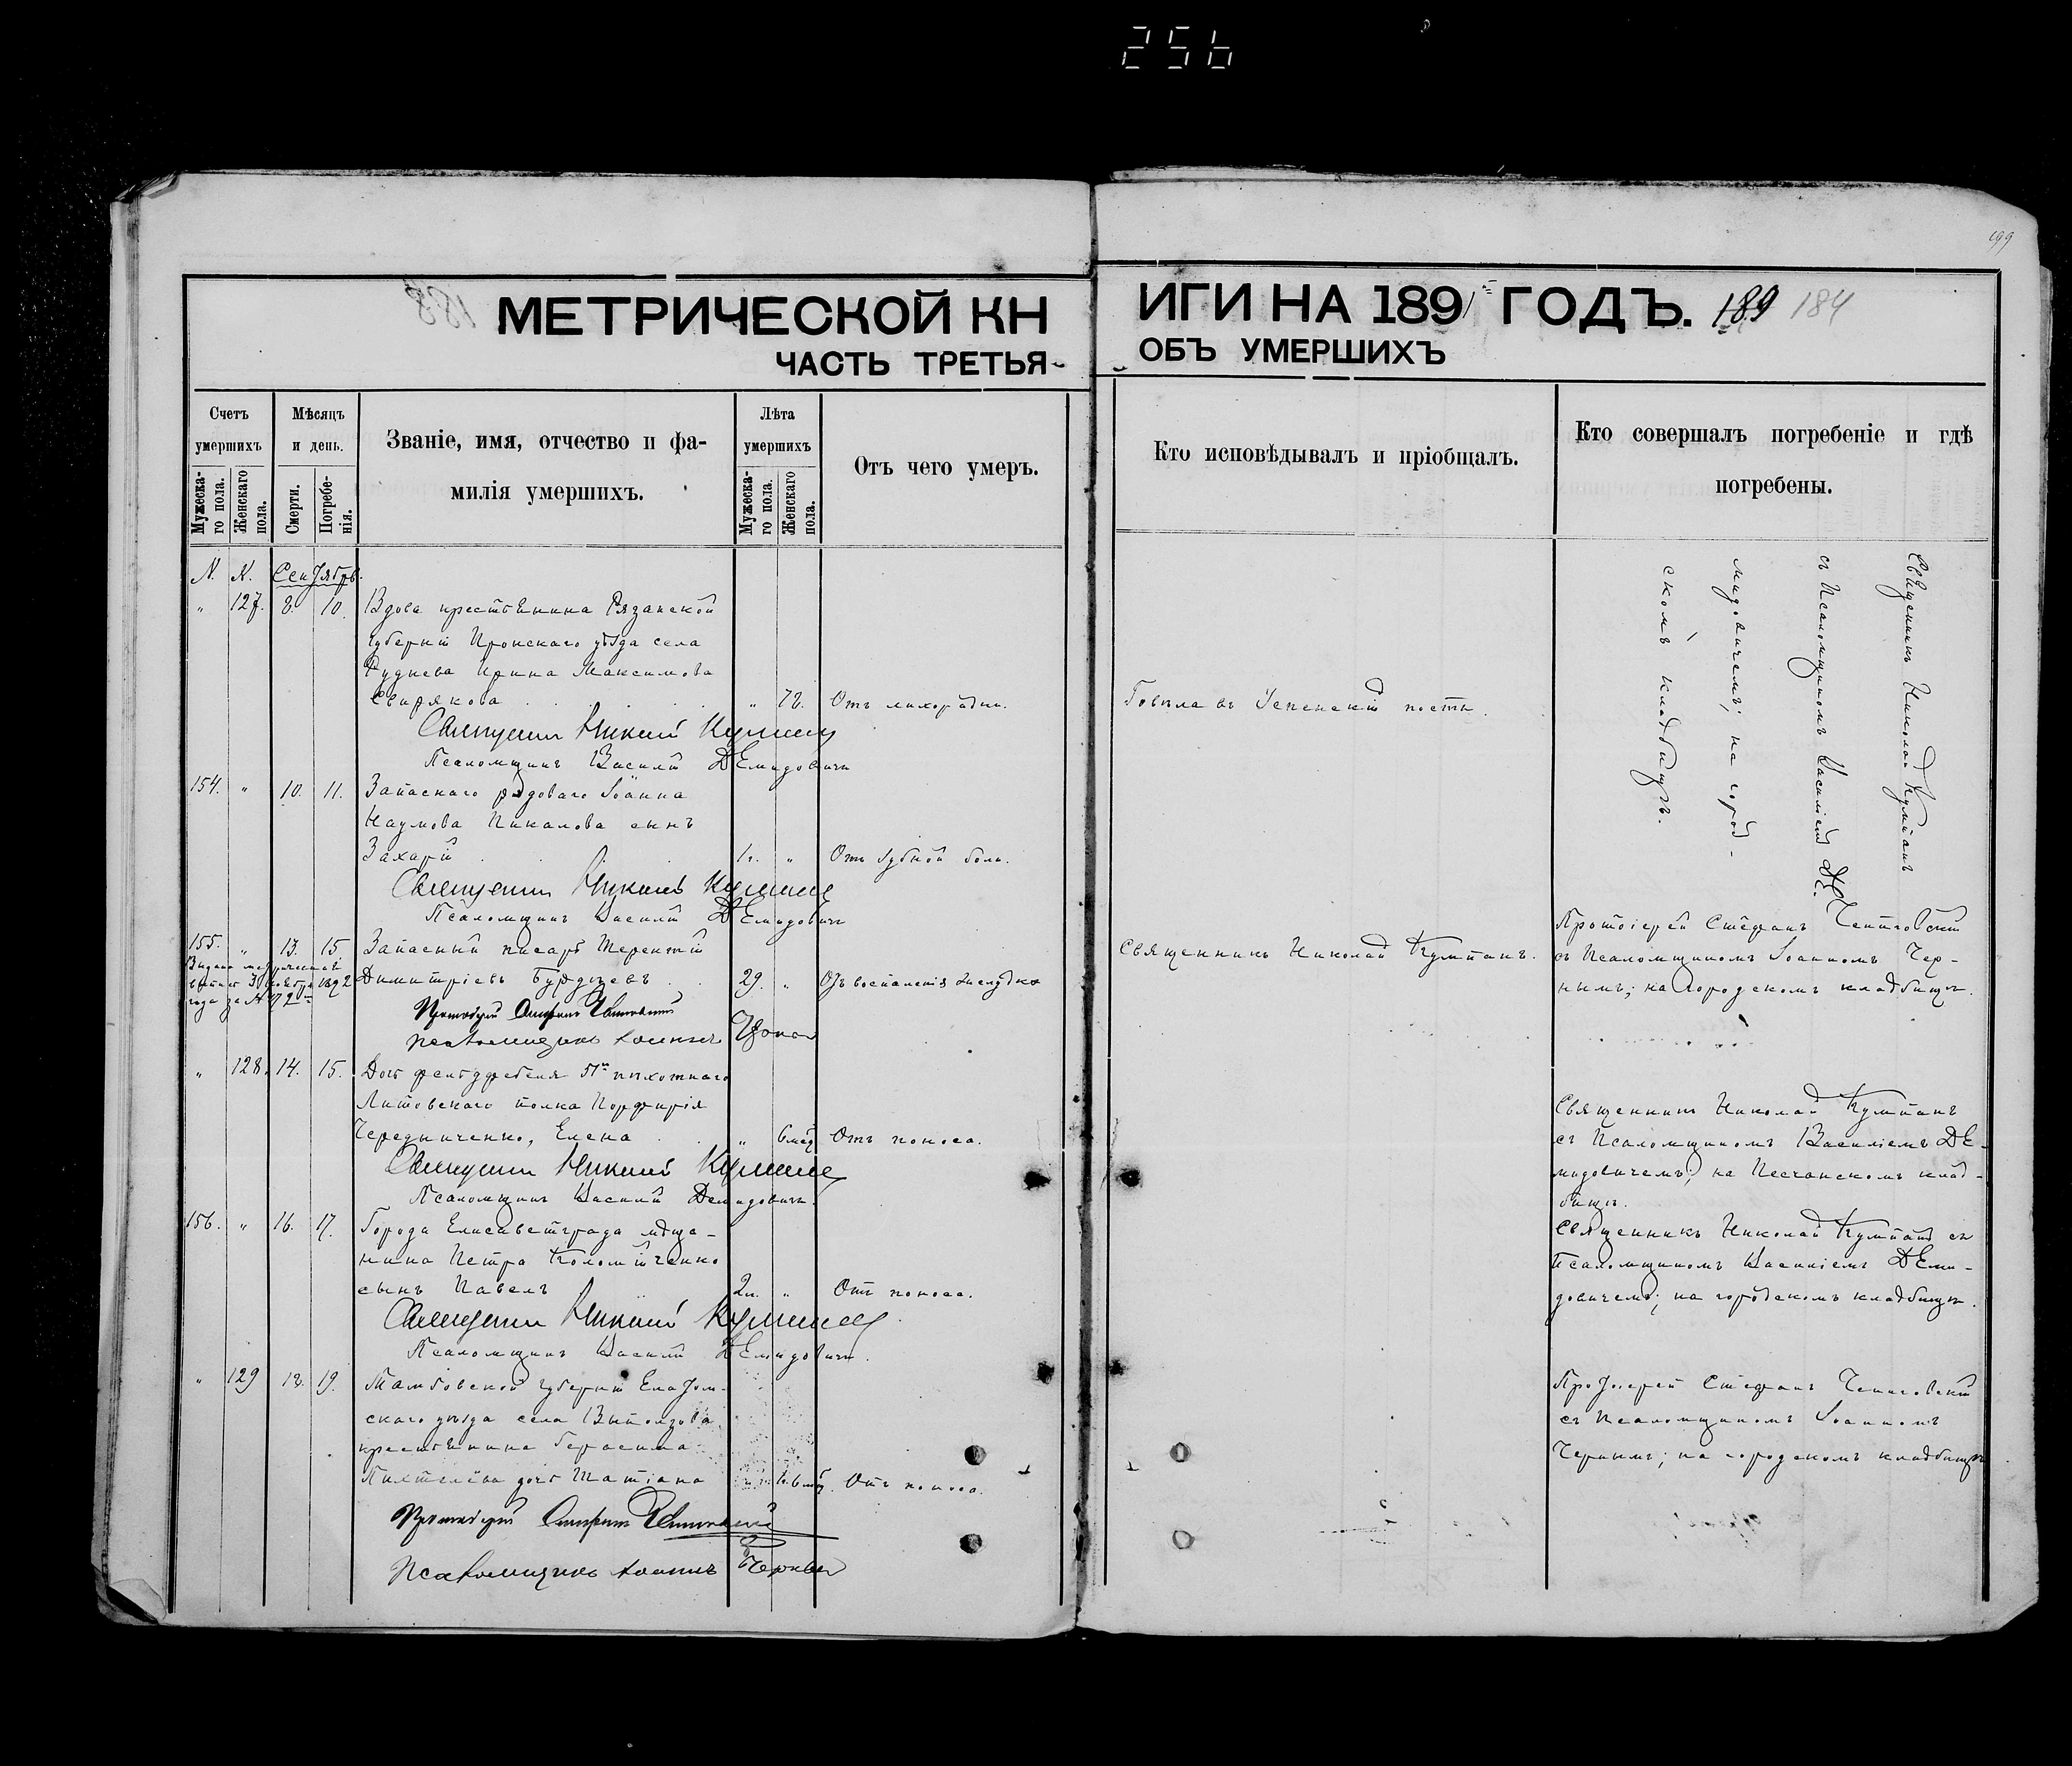 256
199
МЕТРИЧЕСКОЙ КН
ЧАСТЬ ТРЕТЬЯ
ИГИ НА 1891 ГОДЪ. 189 184
ОБЪ УМЕРШИХЪ
Счетъ умершихъ
Мужеска-
го пола.
Женскаго
пола.
Мѣсяцъ и день.
Смерти.
Погребе-
нія.
Званіе, имя, отчество и фа-
милія умершихъ.
Лѣта умершихъ
Мужеска-
го пола.
Женскаго
пола.
Отъ чего умеръ.
Кто исповѣдывалъ и пріобщалъ.
Кто совершалъ погребеніе и гдѣ
погребены.
N. N. Сентябрь.
" 127. 8. 10. Вдова крестьянина Рязанской
губерніи Пронскаго уѣзда села
Руднева Ирина Максимова
Свирякова " 72. Отъ лихорадки. Говѣла въ Успенскій постъ.
Священникъ Николай Купман
Псаломщикъ Василій Демидовичъ
Священникъ Николай Кумпанъ
съ Псаломщикомъ Василіемъ Де
мидовичемъ; на город-
скомъ кладбищѣ.
154. " 10. 11. Запаснаго рядоваго Іоанна
Наумова Пикалова сынъ
Захарій 1г. " Отъ зубной боли.
Священникъ Николай Кумпанъ
Псаломщикъ Василій Демидовичъ
155. " 13. 15. Запасный писарь Терентій
Димитріевъ Бурдзевъ 29. " Отъ воспаленія желудка
Священникъ Николай Кумпанъ.
Протоіерей Стефанъ
съ Псаломщикомъ Іоанномъ Чер-
нымъ; на городскомъ кладбищѣ.
1892
года за №
Протоіерей Стефанъ
Псаломщикъ Іоаннъ
" 128. 14. 15. Дочь фельдфебеля 51го пѣхотнаго
Литовскаго полка Порфирія
Чередниченко, Елена " 6 мѣс. Отъ поноса.
Священникъ Николай Кумпанъ
съ Псаломщикомъ Василіемъ Де-
мидовичемъ; на Песчанскомъ клад-
бищѣ.
Священникъ Николай Кумпанъ
Псаломщикъ Василій Демидовичъ.
156. " 16. 17. Города Елисаветграда мѣща-
нина Петра Коломійченко
сынъ Павелъ 2г. " Отъ поноса.
Священникъ Николай Кумпанъ съ
Псаломщикомъ Василіемъ Деми-
довичемъ; на городскомъ кладбищѣ.
Священникъ Николай Кумпанъ
Псаломщикъ Василій Демидовичъ.
" 129 18. 19. Тамбовской губерніи Елатом-
скаго уѣзда села
крестьянина Герасима
дочь Татіана Отъ поноса.
Протоіерей Стефанъ
съ Псаломщикомъ Іоанномъ
Чернымъ; на городскомъ кладбищѣ
Протоіерей Стефанъ
Псаломщикъ Іоаннъ